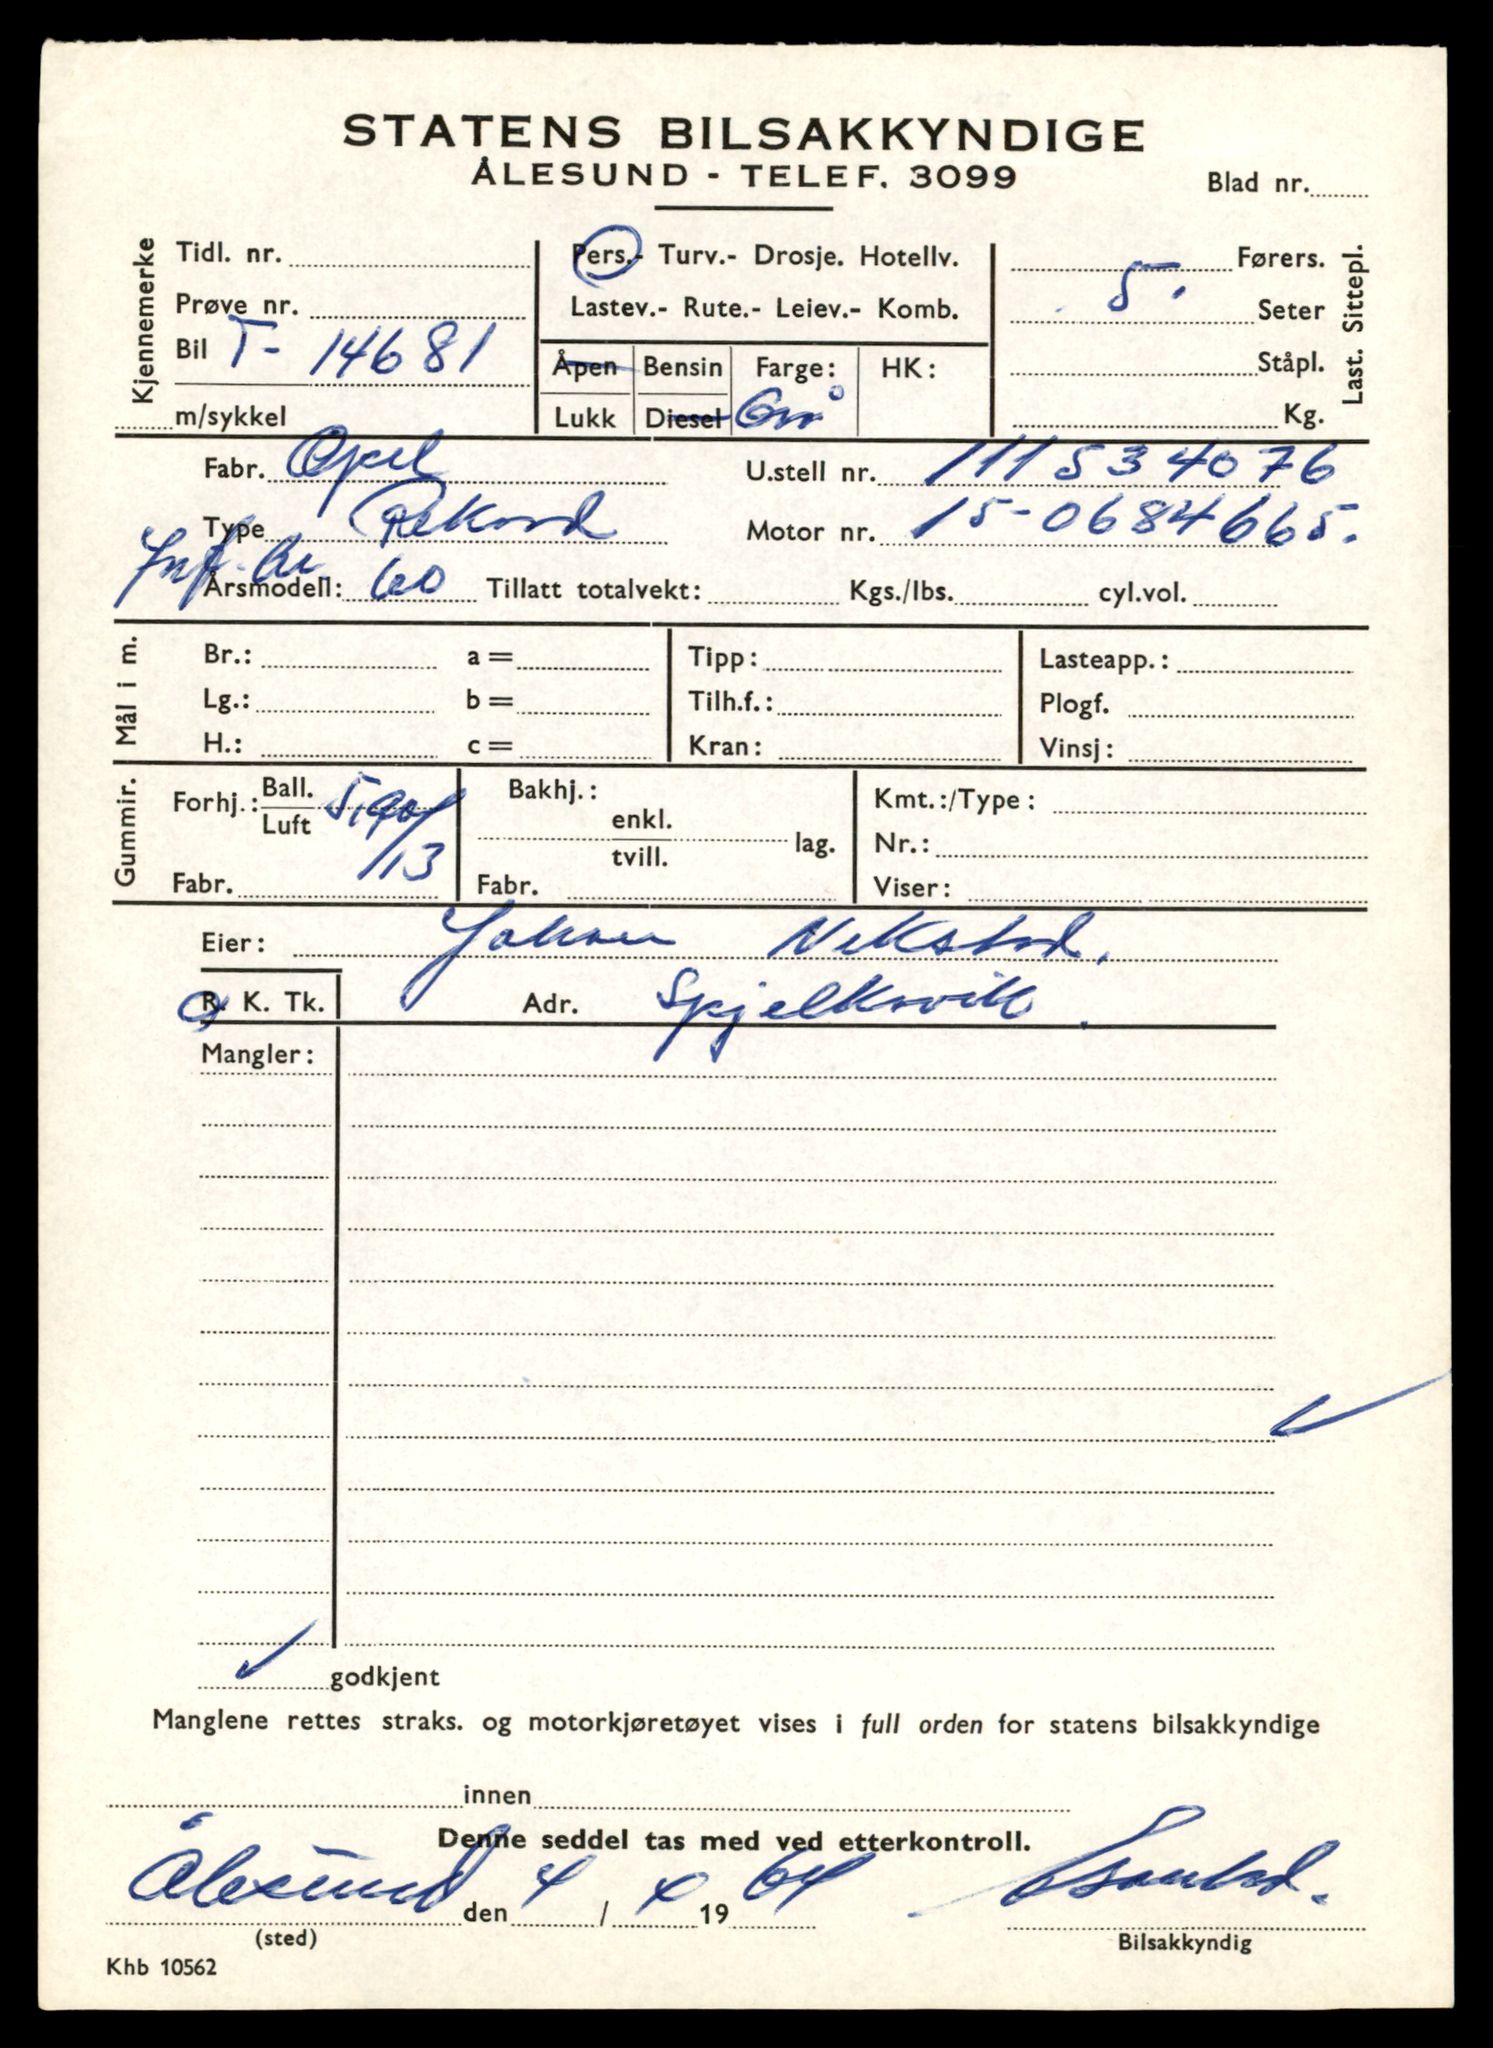 STATENS BILSAKKYNDIGE
ÅLESUND - TELEF. 3099
Blad nr.
Kjennemerke
Tidl. nr.
Prøve nr.
Bil T- 14681
m/sykkel
Pers.- Turv.- Drosje. Hotellv.
Lastev.- Rute.- Leiev.- Komb.
Åpen Bensin Farge: HK:
Lukk Diesel Grå
Førers.
5. Seter
Ståpl.
Kg.
Last. Sittepl.
Fabr. Opel U.stell nr. 111534076
Type Rekord Motor nr. 15-0684665.
Årsmodell: 60 Tillatt totalvekt: Kgs./lbs. cyl.vol.
Mål i m.
Br.: a = Tipp: Lasteapp.:
Lg.: b = Tilh.f.: Plogf.
H.: c = Kran: Vinsj:
Gummir.
Forhj.: Ball. Luft 5,90/13
Fabr.
Bakhj.:
enkl.
tvill. lag.
Fabr.
Kmt.:/Type:
Nr.:
Viser:
Eier:
R. K. Tk. Adr. Spjelkavik.
Mangler:
godkjent
Manglene rettes straks. og motorkjøretøyet vises i full orden for statens bilsakkyndige
innen
Denne seddel tas med ved etterkontroll.
Ålesund den 4 / 19 64
(sted) Bilsakkyndig
Khb 10562